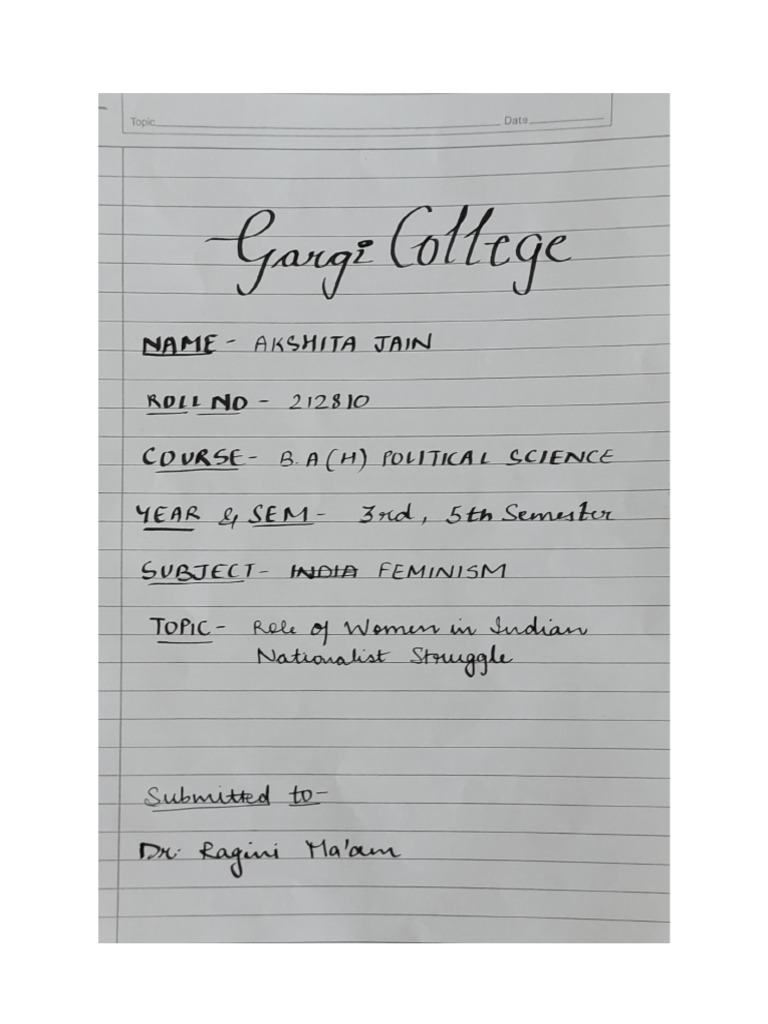 Topic Date
Gargi College
NAME - AKSHITA JAIN
ROLL NO - 212810
COURSE - B.A (H) POLITICAL SCIENCE
YEAR & SEM - 3rd, 5th Semester
SUBJECT - INDIA FEMINISM
TOPIC - Role of Women in Indian
Nationalist Struggle
Submitted to -
Dr. Ragini Ma'am